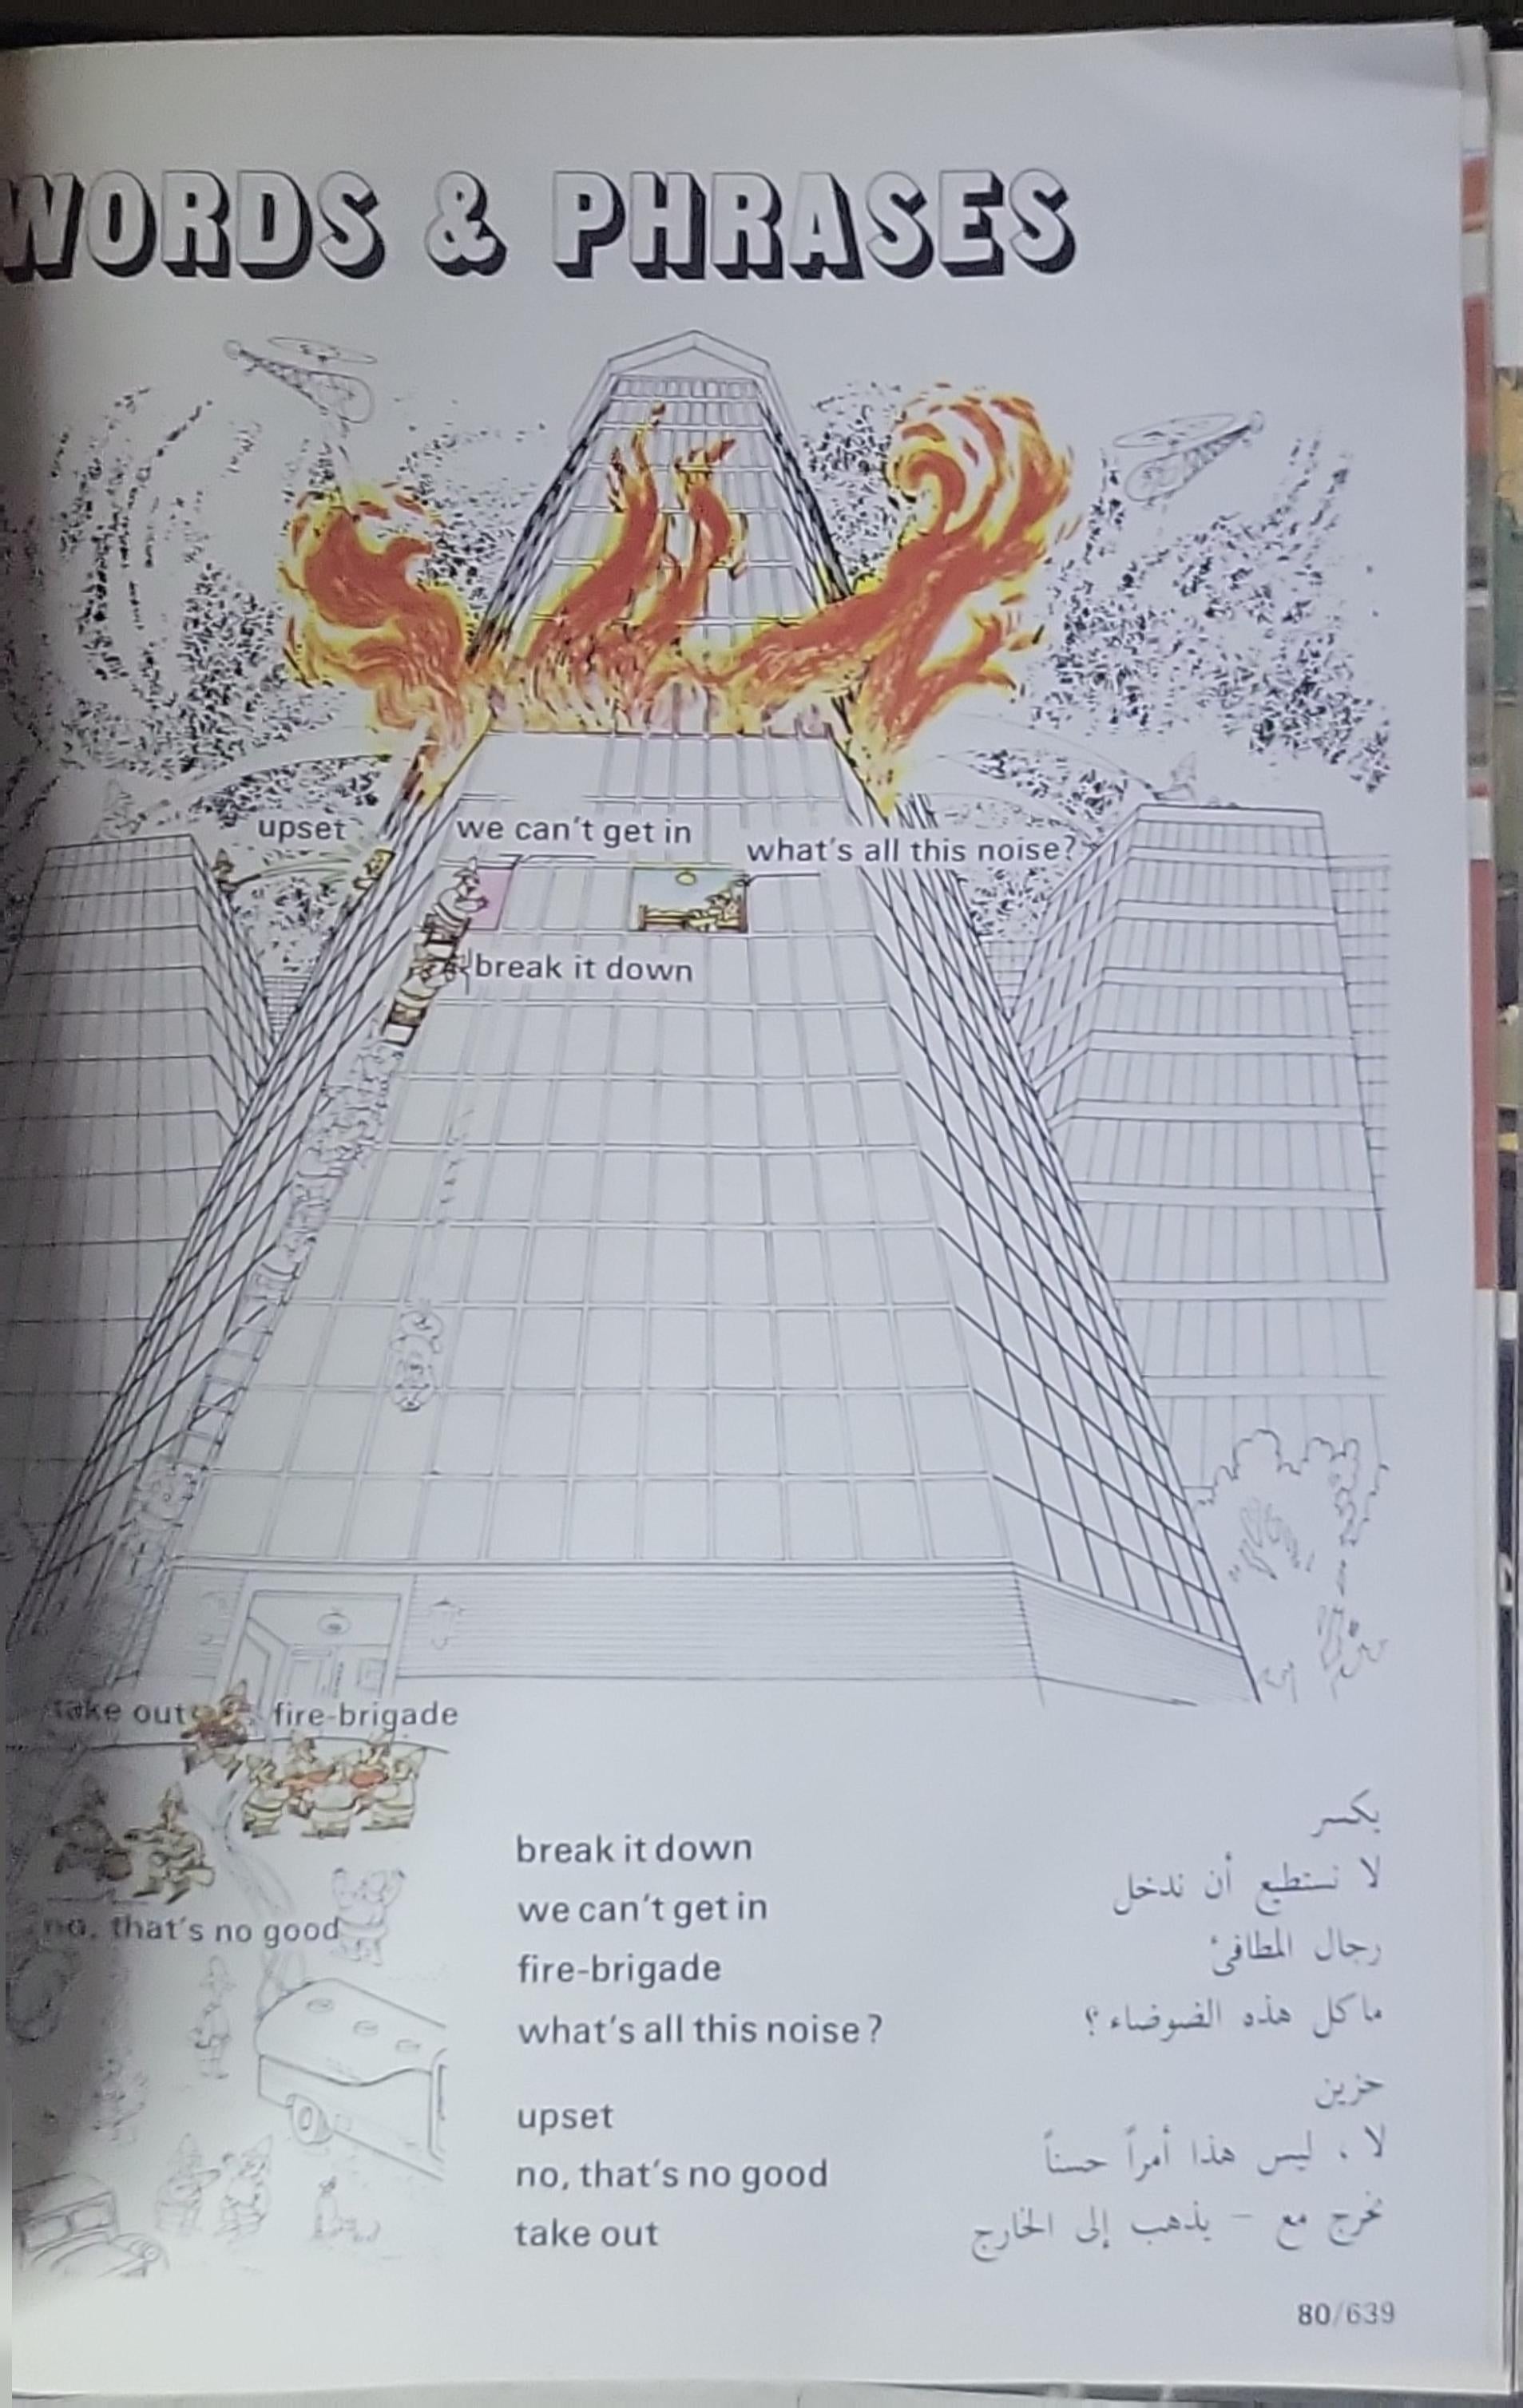 WORDS & PHRASES
upset
we can't get in
what's all this noise?
break it down
take out
fire-brigade
no, that's no good
break it down يكسر
we can't get in لا نستطيع أن ندخل
fire-brigade رجال المطافئ
what's all this noise? ما كل هذه الضوضاء ؟
upset حزين
no, that's no good لا ، ليس هذا أمراً حسناً
take out يخرج مع – يذهب إلى الخارج
80/639